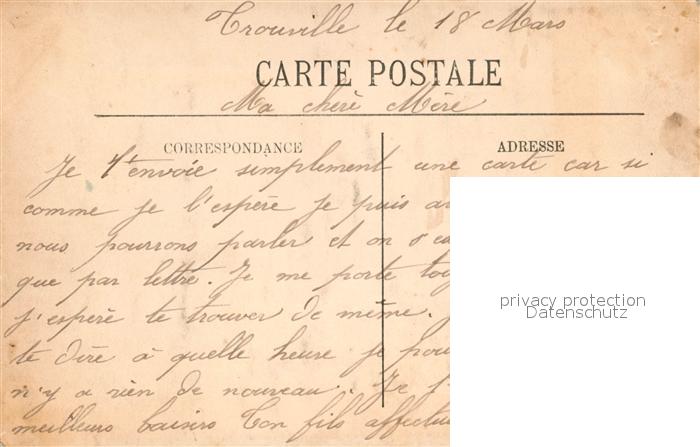 Trouville le 18 Mars
CARTE POSTALE
Ma chèrè Mèrè
CORRESPONDANCE
ADRESSE
Je t'envoie simplement une carte car si
comme je l'espèrè je puis
nous pourrons parler et on
que par lettrè. Je me porte
j'espèrè te trouver de même.
te dirè à quelle heure je
n'y a rien de nouveau. Je
meilleurs baisers Ton fils
privacy protection
Datenschutz